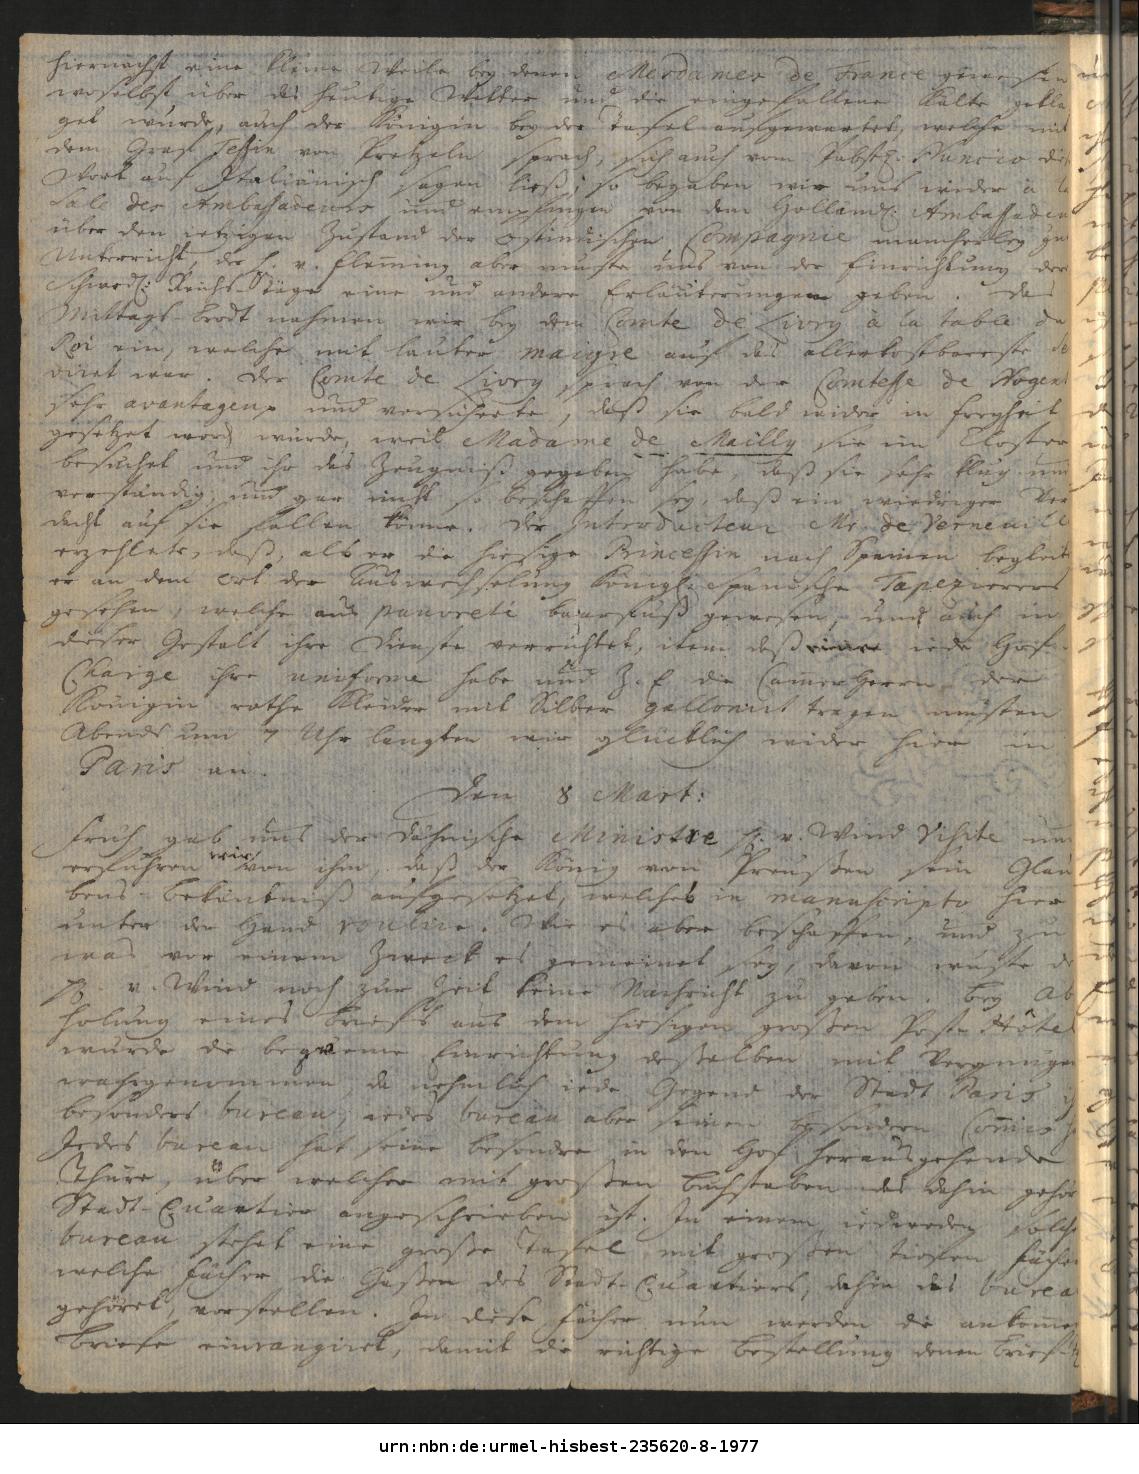 hiernächst eine kleine Weile bey denen Mesdames de France gewesen
woselbst über die heutige Witter und die eingefallene Kälte gekla
get wurde, auch der Königin bey der Tafel aufgewartet, welche mit
dem Graf Tessin von Pretzeln sprach, sich auch vom Pabstl: Nuncio die
Wort auf Italiänisch sagen ließ; so begaben wir uns wieder à la
Sale des Ambassadeurs und empfingen von dem Holländ: Ambassadeu
über den jetzigen Zustand der ostindischen Compagnie mancherley gu
Unterricht, der H. v. Flemming aber muste uns von der Einrichtung der
Schwed: Reichs-Täge eine und andere Erläuterungen geben. Das
Mittags-Brodt nahmen wir bey dem Comte de Livry à la table du
Roi ein, welche mit lauter maigre auf das allerkostbarste se
virt war. Der Comte de Livry sprach von der Comtesse de Nogent
sehr avantageux und versicherte, daß sie bald wider in Freyheit
gesetzet werd. würde, weil Madame de Mailly sie im Closter
besuchet und ihr das Zeugniß gegeben habe, daß sie sehr klug und
verständig, und gar nicht so beschaffen sey, daß ein wiedriger Ver
dacht auf sie fallen könne. Der Introducteur Mr. de Verneuill
erzehlete, daß, als er die hiesige Princessin nach Spanien begleit
er an dem Ort der Auswechselung Königl: Spanische Tapezierers
gesehen, welche aus pauvreté baarfuß gewesen, und auch in
dieser Gestalt ihre Dienste verrichtet, item daß eine jede Hof-
Charge ihre uniforme habe und Z. E. die CammerHerrn der
Königin rothe Kleider mit Silber gallonirt tragen müsten
Abends um 7 Uhr langten wir glücklich wider hier in
Paris an.
Den 8 Mart:
Früh gab uns der Dähnische Ministre H. v. Wind Visite und
erfuhren wir von ihm, daß der König von Preußen sein Glau
bens-Bekäntniß aufgesetzet, welches in manuscripto hier
unter der Hand roulire. Wie es aber beschaffen, und zu
was vor einem Zweck es gemeinet sey, davon wuste de
H. v. Wind noch zur Zeit keine Nachricht zu geben. Bey Ab
holung eines Briefs aus dem hiesigen großen Post-Hôtel
wurde die bequeme Einrichtung deßelben mit Vergnügen
wahrgenommen, da nehmlich jede Gegend der Stadt Paris ih
besonders bureau, jedes bureau aber seinen besondern Commis h
Jedes bureau hat seine besondre in den Hof herausgehende
Thüre, über welcher mit großen Buchstaben das dahin gehör
Stadt-Quartier angeschrieben ist. In einem jedweden solche
bureau stehet eine große Tafel mit großen tiefen Fäche
welche Fächer die Gaßen des Stadt-Quartiers, dahin das burea
gehöret, vorstellen. In diese Fächer nun werden die ankomme
Briefe einrangiret, damit die richtige Bestellung denen Brief-
urn:nbn:de:urmel-hisbest-235620-8-1977